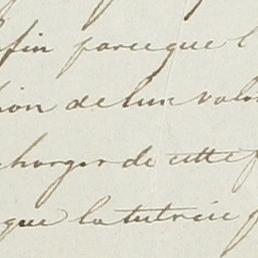 fin parceque l
ion de leur valeu
charger de cette
que la tutrice